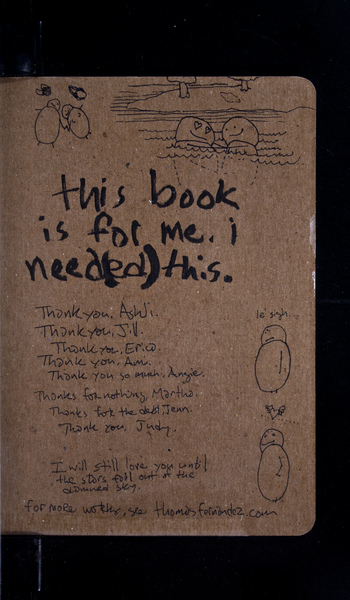 this book
is for me. i
need(ed) this.
Thank you, Ashli.
Thank you, Jill.
Thank you, Erica.
Thank you. Ami.
Thank you so much, Angie.
Thanks for nothing, Martha.
Thanks for the debt Jenn.
Thank you, Judy.
le sigh...
I will still love you until
the stars fall out of the
damned sky.
for more works, see thomasfernandez.com